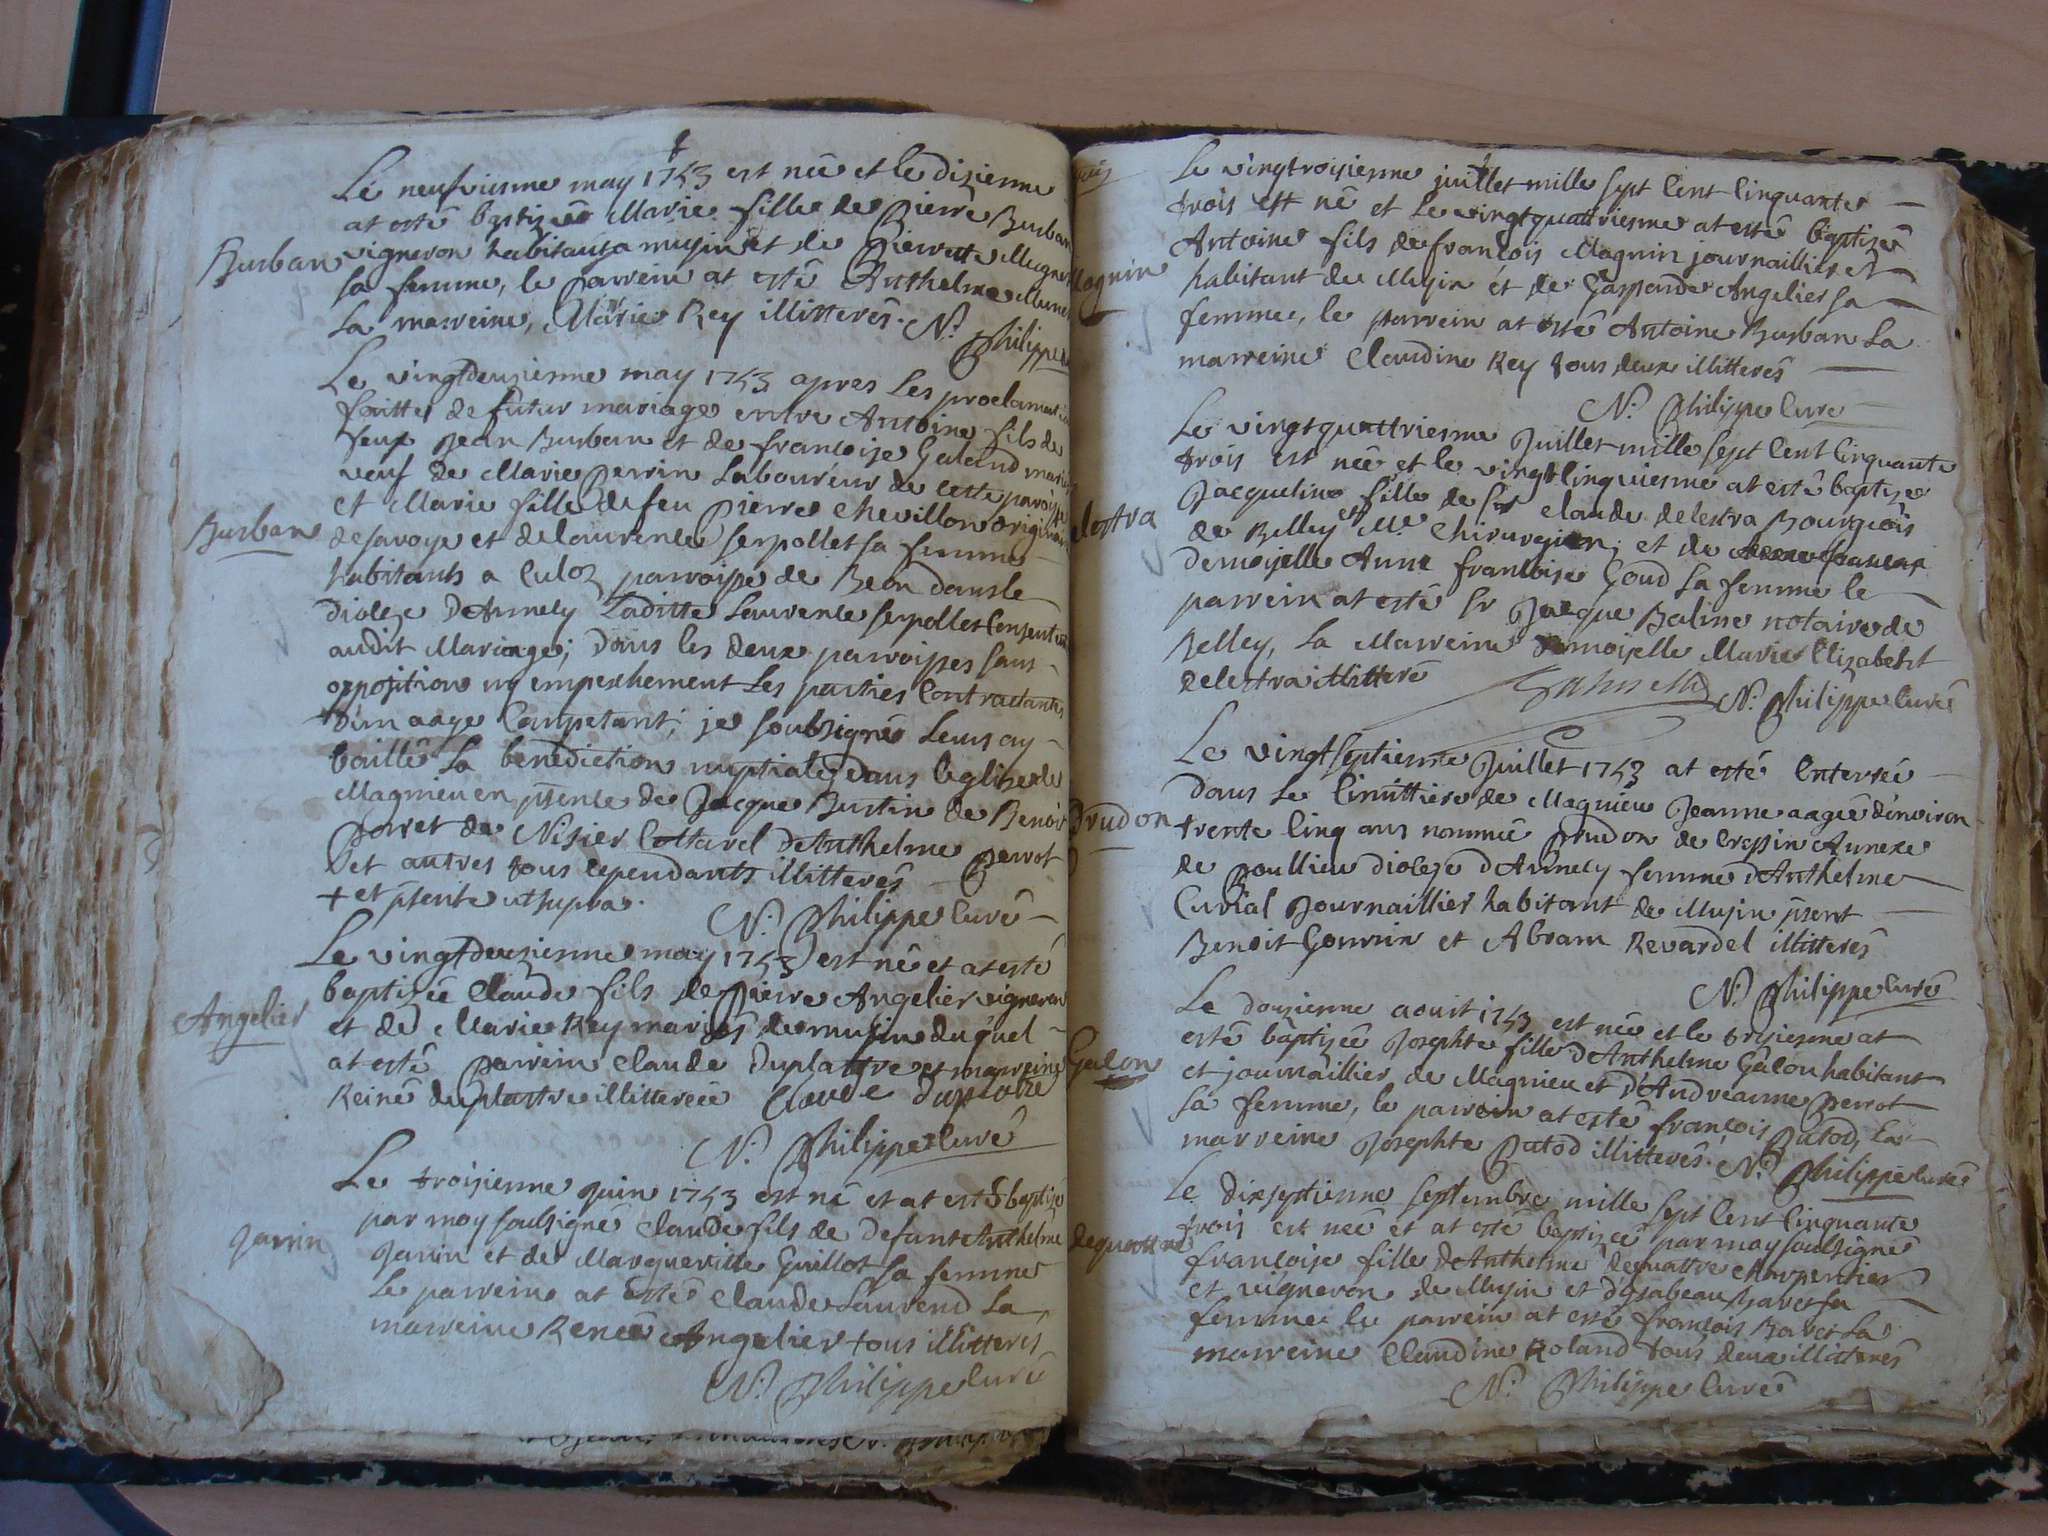 Le neufviesme may 1753 est née et le dizienne
at esté baptizée Marie fille de Pierre Burban
Burban
vigneron habitant a musin et de Pierrette Mugnier
sa femme, le parrein at esté Anthelme
La marreine, Marie Rey illitterés. N. Philippe
Le vingtdeuzienne may 1753 apres Les proclamations
faittes de futur mariage entre Antoine fils de
feux Jean Burban et de francoise Galand mariés
veuf de Marie Perrin Laboureur de ceste paroisse
et Marie fille de feu Pierre Chevillon originaire
Burban
de savoye et de laurence serpollet sa femme
habitants a Culoz parroisse de Beon dans le
dioleze D'Annecy Laditte Laurence serpollet consentant
audit Mariage; Dans les deux parroisses sans
opposition ny empeschement Les parties Contractantes
+ d'un aage Competant; je soubsigné Leur ay
baillé La benediction nuptiale dans l'eglise de
Magnieu en psence de Jacque Bustin de Benoit
Porret de Nisier Cottarel D'Anthelme Perrot
et autres tous cependants illitterés
+ et psente ut supra.
N. Philippe Curé
Le vingtdeuzienne may 1753 est né et at esté
baptizée Claude fils de Pierre Angelier vigneron
Angelier
et de Marie Rey mariés de musin duquel
at esté parrein Claude Duplattre et marreine
Reine duplattre illitterée Claude Duplatre
N. Philippe Curé
Le troizienne juin 1753 est né et at esté baptizé
par moy soubsigné Claude fils de defunt Anthelme
Janin
Janin et de Margueritte Guillot sa femme
Le parrein at esté Claude Laurend La
marreine Renée Angelier tous illitterés
N. Philippe Curé
Le vingtroizienne juillet mille sept Cent Cinquante
trois est né et Le vingtquattriesme at esté baptizé
Antoine fils de francois Magnin journaillier et
Magnin
habitant de Musin et de Gasparde Angelier sa
femme, le parrein at esté Antoine Burban La
marreine Claudine Rey tous deux illitterés
N. Philippe Curé
Le vingtquattriesme Juillet mille sept Cent Cinquante
trois est née et le vingtcinquiesme at esté baptizé
Jacqueline fille de Sr Claude delestra Bourgeois
delestra
de Belley et Me Chirurgien; et de
demoiselle Anne francoise Goud sa femme le
parrein at esté Sr Jacque Balme notaire de
Belley, La Marreine demoiselle Marie Elizabeht
delestra illitteré
N. Philippe Curé
Le vingtseptienne Juillet 1753 at esté Enterrée
dans Le Cimittiere de Magnieu Jeanne aagée d'environ
Prudon
trente cinq ans nommée Prudon de Cressin Annexe
de Poullieu dioleze d'Annecy femme d'Anthelme
Curial Journaillier habitant de Musin psent
Benoit Gonvrin et Abram Revardel illitterés
N. Philippe Curé
Le douzienne aoust 1753 est née et le trezienne at
esté baptizée Josephte fille d'Anthelme Galon habitant
Galon
et journaillier de Magnieu et d'Andréanne Perrot
sa femme, le parrein at esté françois Putod, La
marreine Josephte Putod illitterés. N. Philippe Curé
Le dixseptienne septembre mille sept Cent Cinquante
trois est née et at esté baptizée par moy soubsigné
dequattre
francoise fille d'Anthelme dequattre charpentier
et vigneron de Musin et d'ysabeau Bavet sa
femme le parrein at esté françois Bavet La
marreine Claudine Roland tous deux illitterés
N. Philippe Curé